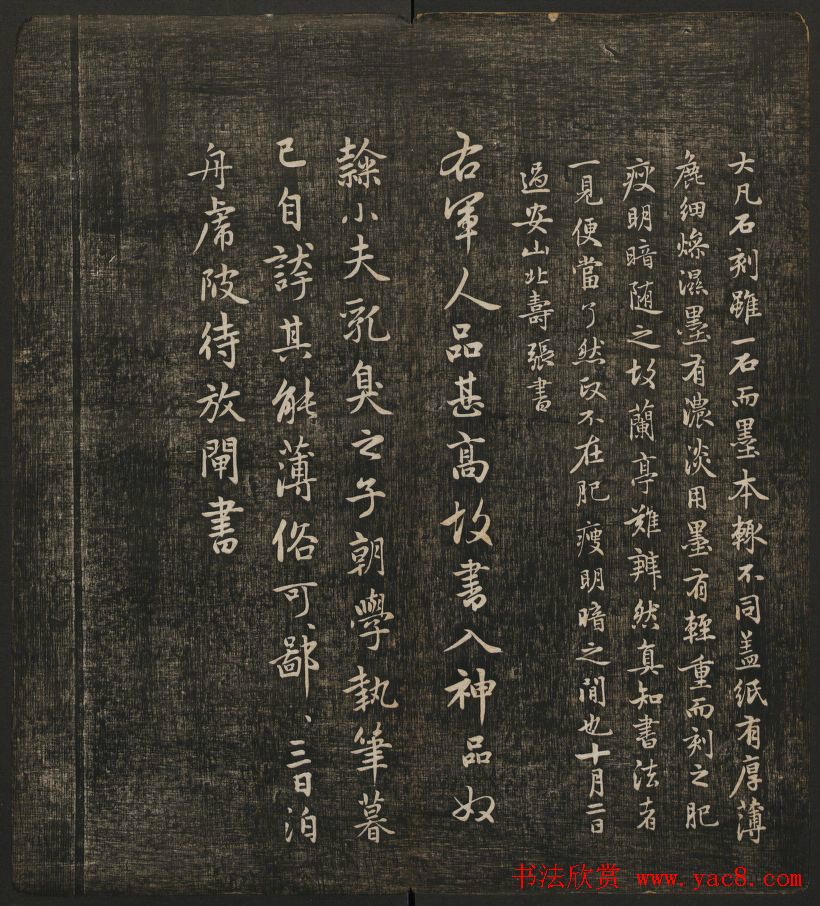 大凡石刻雖一石而墨本輙不同盖紙有厚薄
麁細燥濕墨有濃淡用墨有輕重而刻之肥
瘦明暗随之故蘭亭難辨然真知書法者
一見便當了然政不在肥瘦明暗之間也十月二日
過安山北壽張書
右軍人品甚高故書入神品奴
隸小夫乳臭之子朝學執筆暮
已自誇其能薄俗可鄙、三日泊
舟虎陂待放閘書
书法欣赏 www.yac8.com